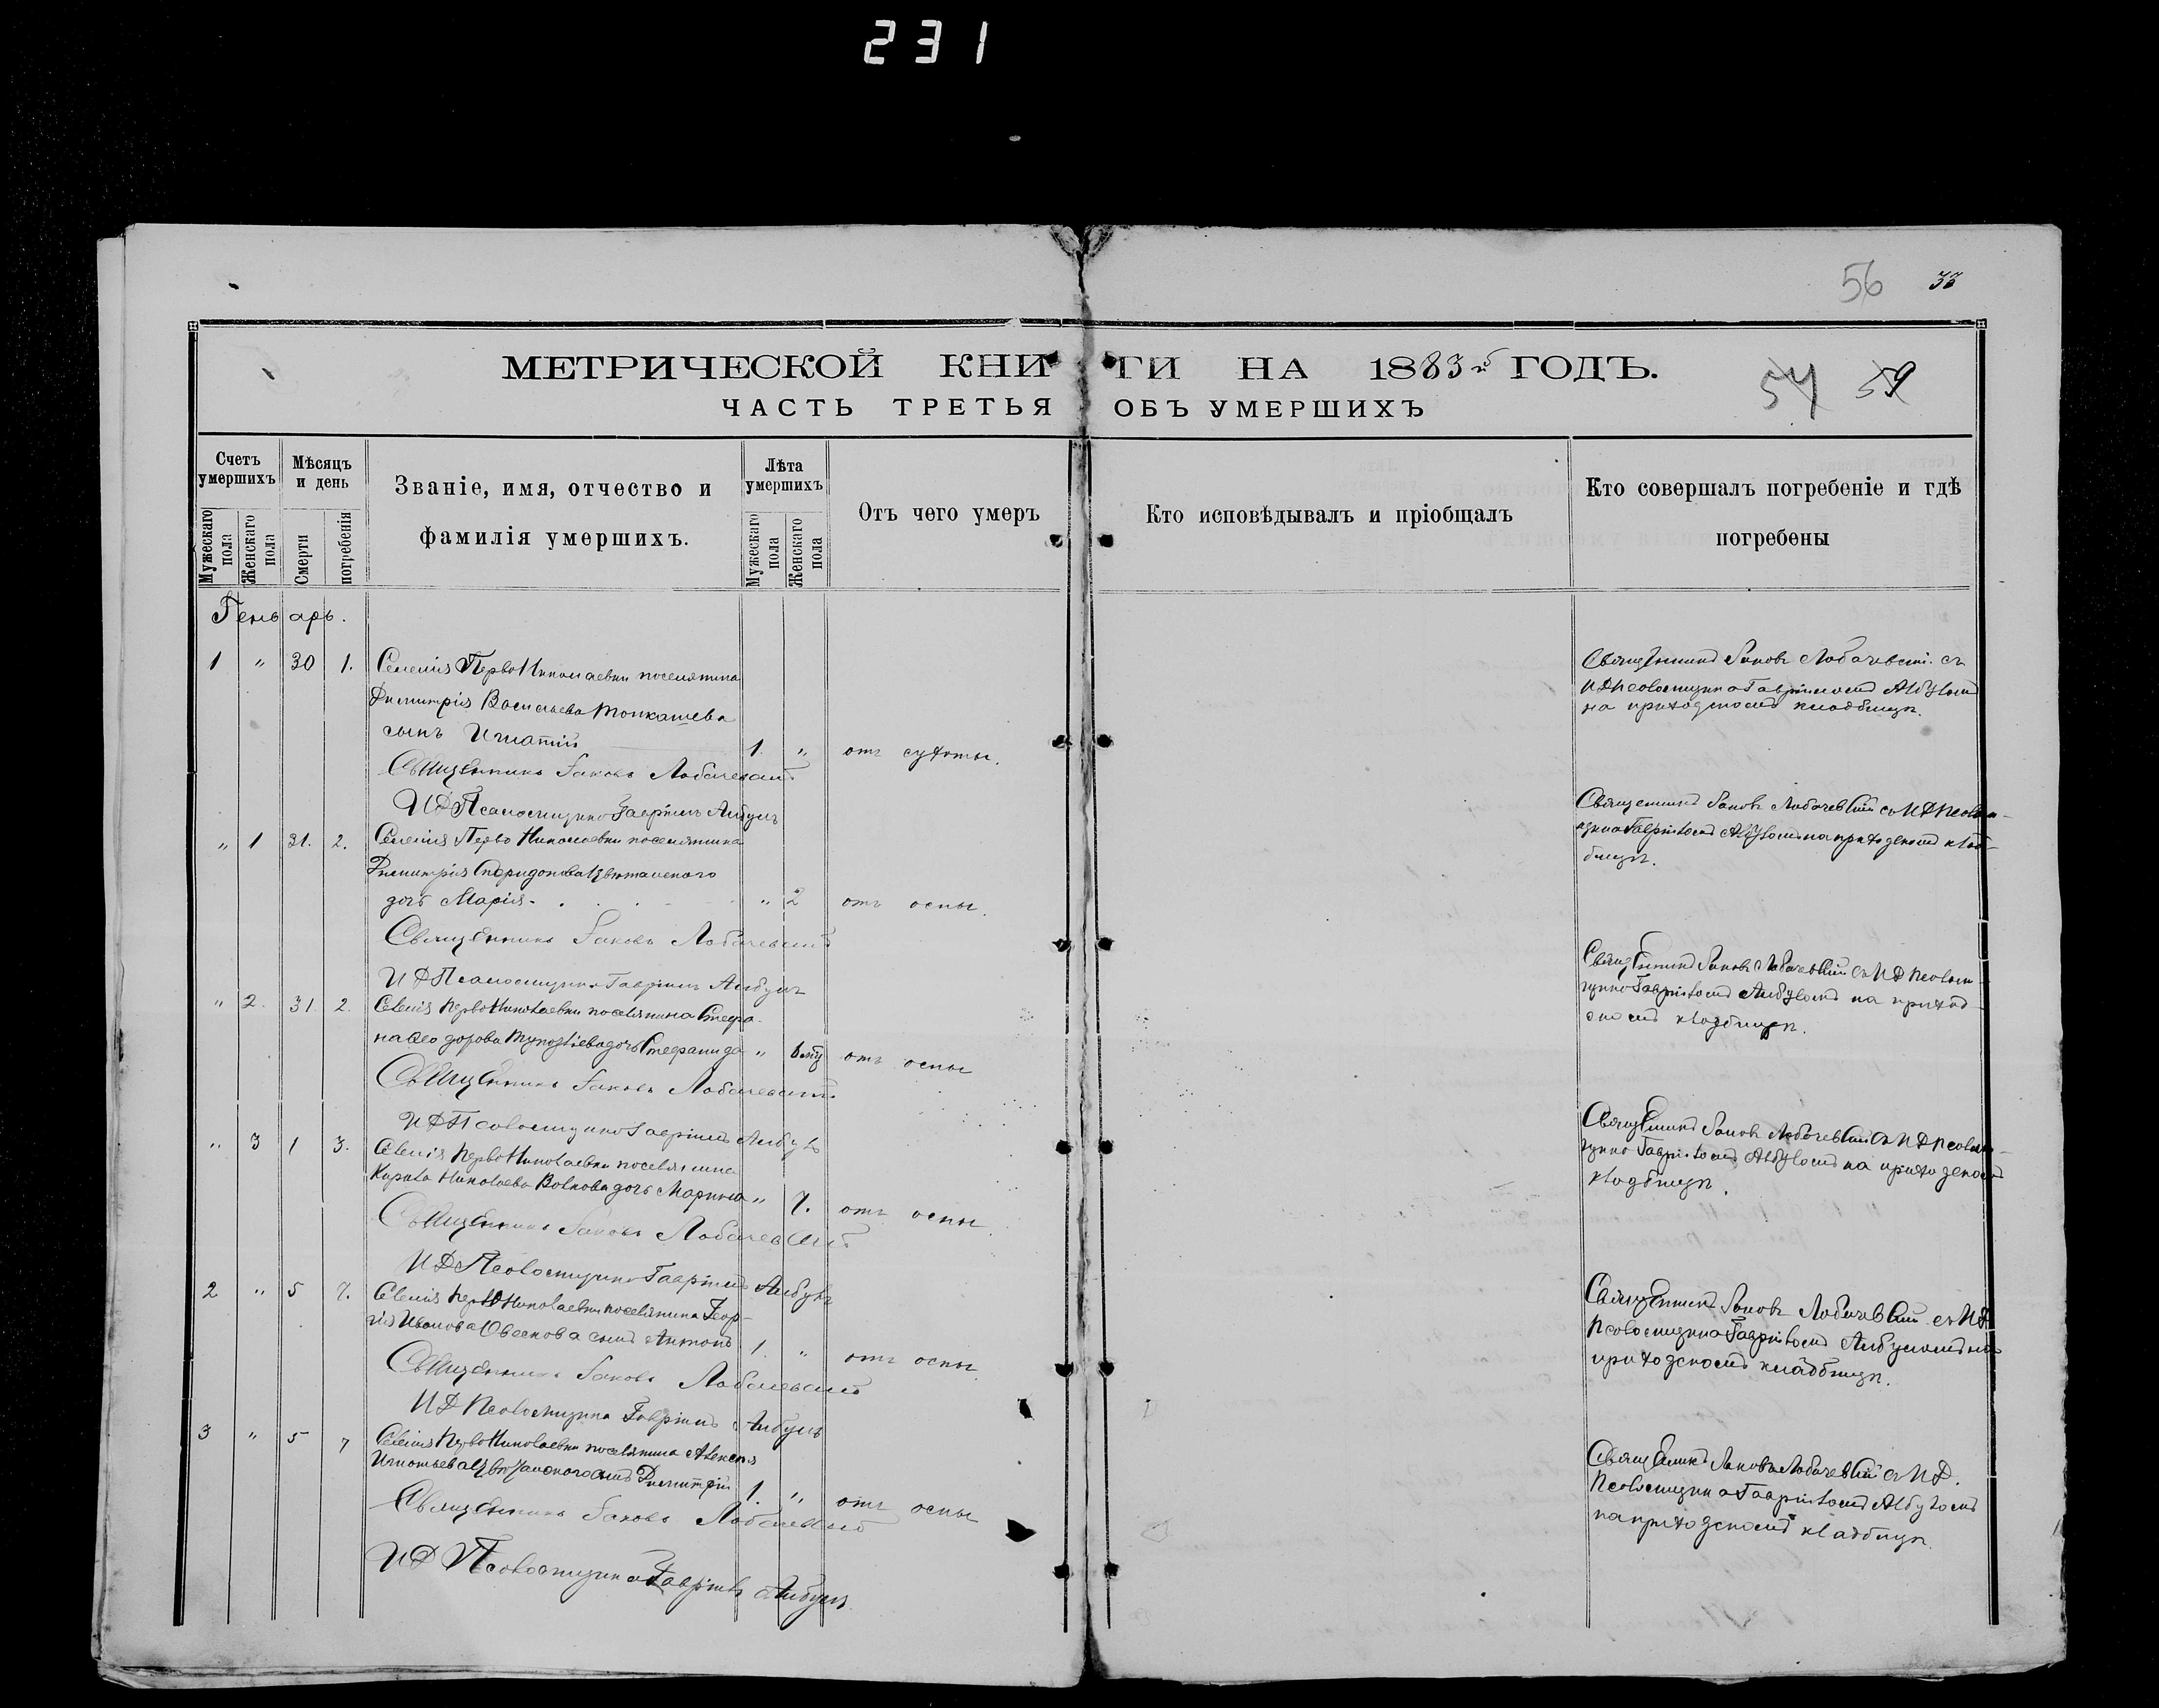 231
56 33
МЕТРИЧЕСКОЙ КНИГИ НА 1883й ГОДЪ.
54 59
ЧАСТЬ ТРЕТЬЯ ОБЪ УМЕРШИХЪ
Счетъ умершихъ
Мужескаго пола
Женскаго пола
Мѣсяцъ и день
Смерти
погребенія
Званіе, имя, отчество и
фамилія умершихъ.
Лѣта умершихъ
Мужескаго пола
Женскаго пола
Отъ чего умеръ
Кто исповѣдывалъ и пріобщалъ
Кто совершалъ погребеніе и гдѣ
погребены
Генварь.
1 " 30 1. Селенія Перво Николаевки поселянина
Димитрія Васильева
сынъ Игнатій 1. " отъ сухоты.
Священникъ Іаковъ Лобачевскій
ИД Псаломщика Гавріилъ Албулъ
Священникъ Іаковъ Лобачевскій съ
ИД Псаломщика Гавріиломъ Албуломъ
на приходскомъ кладбищѣ.
" 1 31. 2. Селенія Перво Николаевки поселянина
Димитрія Спиридонова
дочь Марія " 2 отъ оспы.
Священникъ Іаковъ Лобачевскій
ИД Псаломщика Гавріилъ Албулъ
Священникъ Іаковъ Лобачевскій съ ИД Псалом-
щика Гавріиломъ Албуломъ на приходскомъ клад-
бищѣ.
" 2. 31. 2. Селенія Перво Николаевки поселянина Стефа-
на Ѳеодорова дочь Стефанида " отъ оспы
Священникъ Іаковъ Лобачевскій
ИД Псаломщика Гавріилъ Албулъ
Священникъ Іаковъ Лобачевскій съ ИД Псалом-
щика Гавріиломъ Албуломъ на приход-
скомъ кладбищѣ.
" 3 1 3. Селенія Перво Николаевки поселянина
Кирила Николаева Волкова дочь Марина " 7. отъ оспы.
Священникъ Іаковъ Лобачевскій
ИД Псаломщика Гавріилъ Албулъ
Священникъ Іаковъ Лобачевскій съ ИД Псалом-
щика Гавріиломъ Албуломъ на приходскомъ
кладбищѣ.
2 " 5 7. Селенія Перво Николаевки поселянина Геор-
гія Иванова сынъ Антонъ 1. " отъ оспы.
Священникъ Іаковъ Лобачевскій
ИД Псаломщика Гавріилъ Албулъ
Священникъ Іаковъ Лобачевскій съ ИД
Псаломщика Гавріиломъ Албуломъ на
приходскомъ кладбищѣ.
3 " 5 7 Селенія Перво Николаевки поселянина Алексѣя
Игнатьева сынъ Димитрій 1. " отъ оспы
Священникъ Іаковъ Лобачевскій
ИД Псаломщика Гавріилъ Албулъ.
Священникъ Іаковъ Лобачевскій съ ИД.
Псаломщика Гавріиломъ Албуломъ
на приходскомъ кладбищѣ